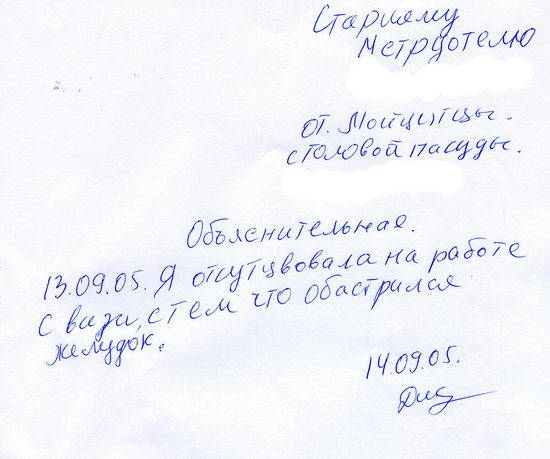 Старшему
Метрдотелю
от. Мойщитцы.
столовой пасуды.
Объяснительная.
13.09.05. Я отсутцвовала на работе
С вязи, с тем что обастрился
желудок.
14.09.05.